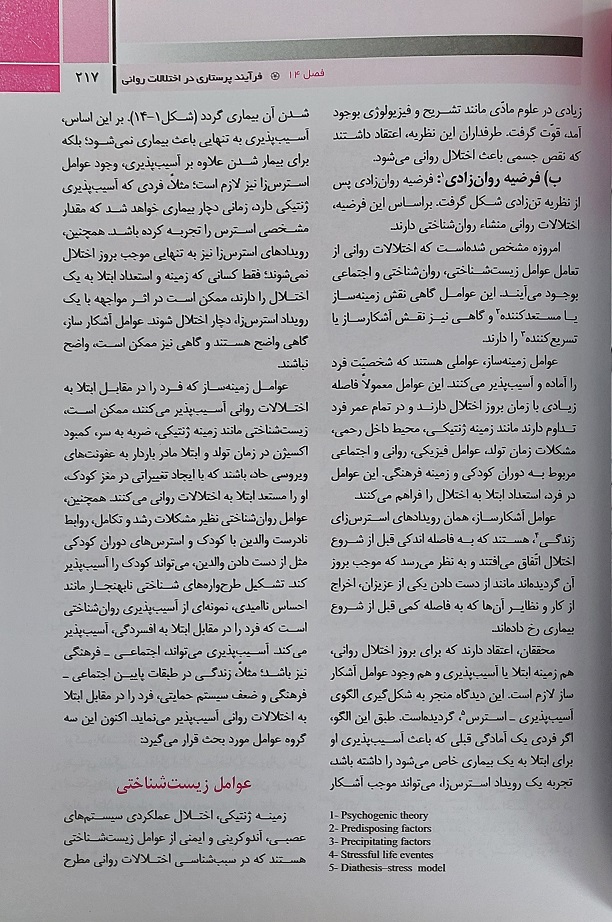 فصل ۱۴ ⊛ فرآیند پرستاری در اختلالات روانی
۲۱۷
زیادی در علوم مادّی مانند تشریح و فیزیولوژی بوجود
آمد، قوّت گرفت. طرفداران این نظریه، اعتقاد داشتند
که نقص جسمی باعث اختلال روانی می‌شود.
ب) فرضیه روان‌زادی۱: فرضیه روان‌زادی پس
از نظریه تن‌زادی شکل گرفت. براساس این فرضیه،
اختلالات روانی منشاء روان‌شناختی دارند.
امروزه مشخص شده‌است که اختلالات روانی از
تعامل عوامل زیست‌شناختی، روان‌شناختی و اجتماعی
بوجود می‌آیند. این عوامل گاهی نقش زمینه‌ساز
یا مستعدکننده۲ و گاهی نیز نقش آشکارساز یا
تسریع‌کننده۳ را دارند.
عوامل زمینه‌ساز، عواملی هستند که شخصیّت فرد
را آماده و آسیب‌پذیر می‌کنند. این عوامل معمولاً فاصله
زیادی با زمان بروز اختلال دارند و در تمام عمر فرد
تداوم دارند مانند زمینه ژنتیکی، محیط داخل رحمی،
مشکلات زمان تولد، عوامل فیزیکی، روانی و اجتماعی
مربوط به دوران کودکی و زمینه فرهنگی. این عوامل
در فرد، استعداد ابتلا به اختلال را فراهم می‌کنند.
عوامل آشکارساز، همان رویدادهای استرس‌زای
زندگی۴، هستند که به فاصله اندکی قبل از شروع
اختلال اتّفاق می‌افتند و به نظر می‌رسد که موجب بروز
آن گردیده‌اند مانند از دست دادن یکی از عزیزان، اخراج
از کار و نظایر آن‌ها که به فاصله کمی قبل از شروع
بیماری رخ داده‌اند.
محققان، اعتقاد دارند که برای بروز اختلال روانی،
هم زمینه ابتلا یا آسیب‌پذیری و هم وجود عوامل آشکار
ساز لازم است. این دیدگاه منجر به شکل‌گیری الگوی
آسیب‌پذیری ـ استرس۵، گردیده‌است. طبق این الگو،
اگر فردی یک آمادگی قبلی که باعث آسیب‌پذیری او
برای ابتلا به یک بیماری خاص می‌شود را داشته باشد،
تجربه یک رویداد استرس‌زا، می‌تواند موجب آشکار
1- Psychogenic theory
2- Predisposing factors
3- Precipitating factors
4- Stressful life eventes
5- Diathesis–stress model
شدن آن بیماری گردد (شکل۱-۱۴). بر این اساس،
آسیب‌پذیری به تنهایی باعث بیماری نمی‌شود؛ بلکه
برای بیمار شدن علاوه بر آسیب‌پذیری، وجود عوامل
استرس‌زا نیز لازم است؛ مثلاً، فردی که آسیب‌پذیری
ژنتیکی دارد، زمانی دچار بیماری خواهد شد که مقدار
مشخصی استرس را تجربه کرده باشد. همچنین،
رویدادهای استرس‌زا نیز به تنهایی موجب بروز اختلال
نمی‌شوند؛ فقط کسانی که زمینه و استعداد ابتلا به یک
اختلال را دارند، ممکن است در اثر مواجهه با یک
رویداد استرس‌زا، دچار اختلال شوند. عوامل آشکار ساز،
گاهی واضح هستند و گاهی نیز ممکن است، واضح
نباشند.
عوامل زمینه‌ساز که فرد را در مقابل ابتلا به
اختلالات روانی آسیب‌پذیر می‌کنند، ممکن است،
زیست‌شناختی مانند زمینه ژنتیکی، ضربه به سر، کمبود
اکسیژن در زمان تولد و ابتلا مادر باردار به عفونت‌های
ویروسی حاد، باشند که با ایجاد تغییراتی در مغز کودک،
او را مستعد ابتلا به اختلالات روانی می‌کنند. همچنین،
عوامل روان‌شناختی نظیر مشکلات رشد و تکامل، روابط
نادرست والدین با کودک و استرس‌های دوران کودکی
مثل از دست دادن والدین، می‌تواند کودک را آسیب‌پذیر
کند. تشکیل طرح‌واره‌های شناختی نابهنجار مانند
احساس ناامیدی، نمونه‌ای از آسیب‌پذیری روان‌شناختی
است که فرد را در مقابل ابتلا به افسردگی، آسیب‌پذیر
می‌کند. آسیب‌پذیری می‌تواند، اجتماعی ـ فرهنگی
نیز باشد؛ مثلاً، زندگی در طبقات پایین اجتماعی ـ
فرهنگی و ضعف سیستم حمایتی، فرد را در مقابل ابتلا
به اختلالات روانی آسیب‌پذیر می‌نماید. اکنون این سه
گروه عوامل مورد بحث قرار می‌گیرد:
عوامل زیست‌شناختی
زمینه ژنتیکی، اختلال عملکردی سیستم‌های
عصبی، آندوکرینی و ایمنی از عوامل زیست‌شناختی
هستند که در سبب‌شناسی اختلالات روانی مطرح